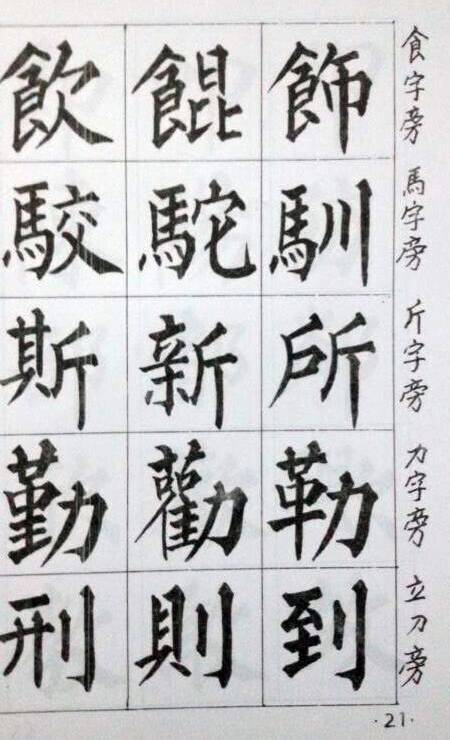 食字旁 飾 餛 飲
馬字旁 馴 駝 駮
斤字旁 所 新 斯
力字旁 勒 勸 勤
立刀旁 到 則 刑
·21·